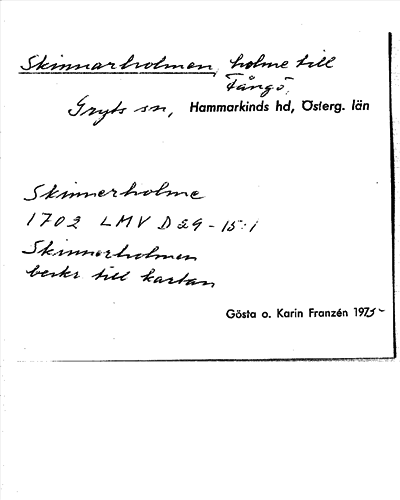 Skinnarholmen, holme till
Fångö.
Gryts sn, Hammarkinds hd, Österg. län
Skinnerholme
1702 LMV D 29-15:1
Skinnerholmen
beskr till kartan
Gösta o. Karin Franzén 1975